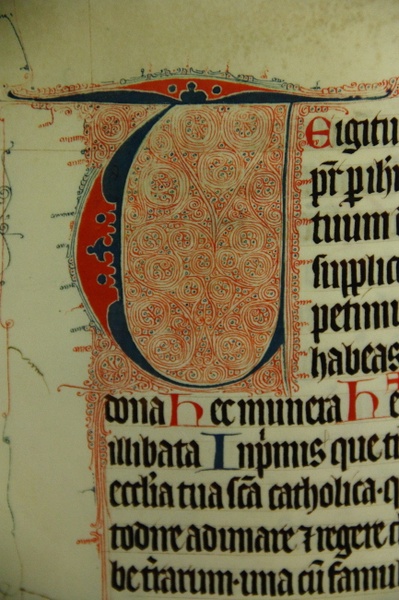 T
Eigitu
pr̄ p̱ ih̄
tuum
supplic
petimu
habeas
dona Hec munera H
illibata Inp̱mis que ti
eccl̄ia tua sc̄a catholica·q
todire adunare ⁊ regere
be t̄rarum·una cū famul